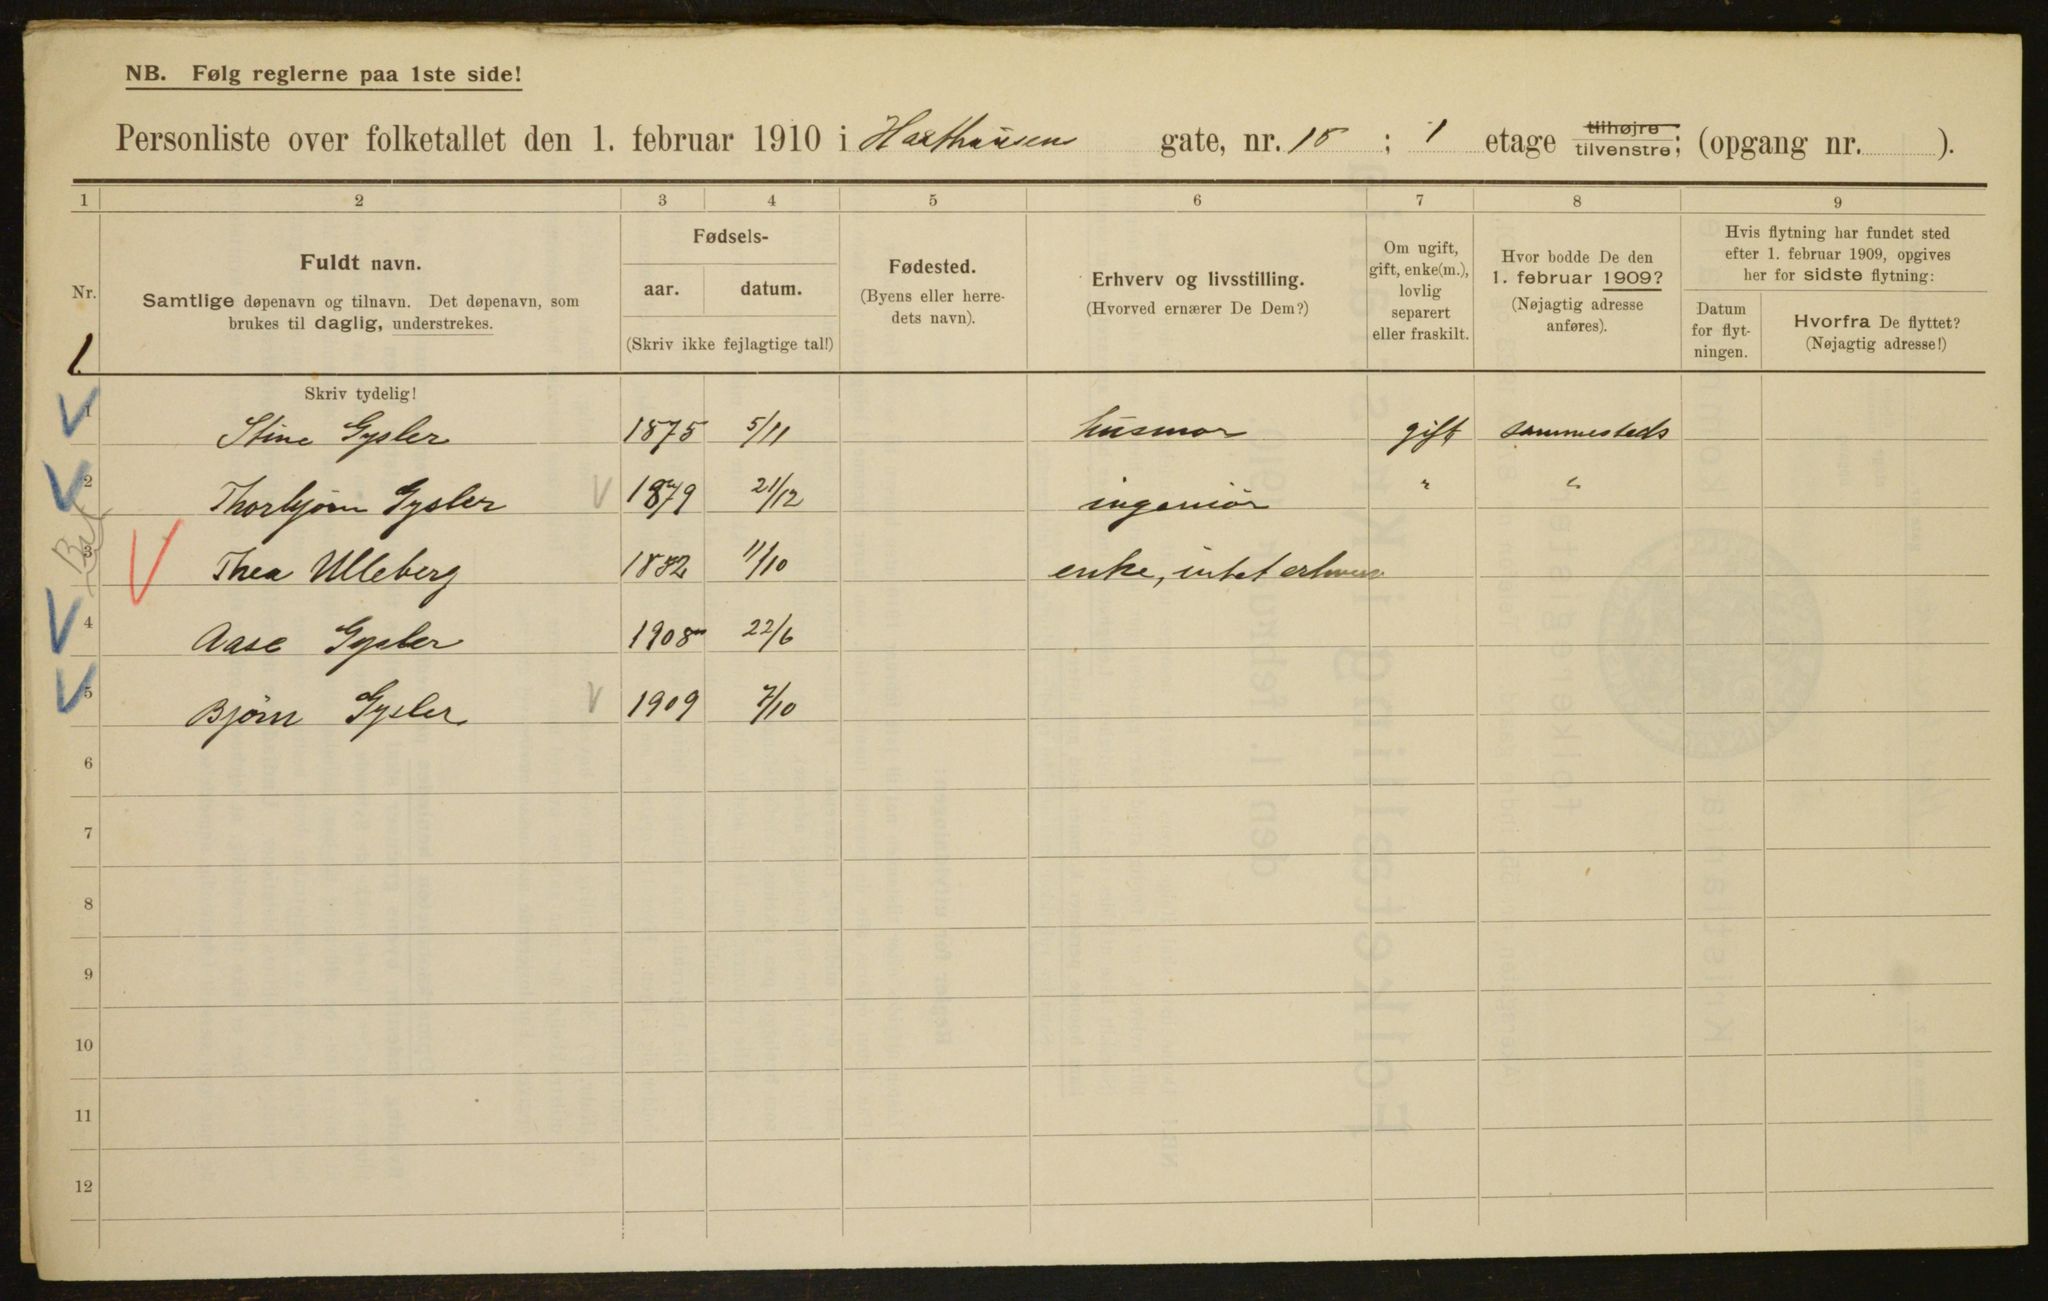 NB. Følg reglerne paa 1ste side!
Personliste over folketallet den 1. februar 1910 i Haxthausen gate, nr. 18 ; 1 etage tilhøjre tilvenstre; (opgang nr. ).
1 2 3 4 5 6 7 8 9
Nr.
Fuldt navn.
Samtlige døpenavn og tilnavn. Det døpenavn, som
brukes til daglig, understrekes.
Fødsels-
aar. datum.
(Skriv ikke fejlagtige tal!)
Fødested.
(Byens eller herre-
dets navn).
Erhverv og livsstilling.
(Hvorved ernærer De Dem?)
Om ugift,
gift, enke(m.),
lovlig
separert
eller fraskilt.
Hvor bodde De den
1. februar 1909?
(Nøjagtig adresse
anføres).
Hvis flytning har fundet sted
efter 1. februar 1909, opgives
her for sidste flytning:
Datum
for flyt-
ningen.
Hvorfra De flyttet?
(Nøjagtig adresse!)
1.
Skriv tydelig!
1 Stine Gysler 1875 5/11 husmor gift sammesteds
2 Thorbjørn Gysler 1879 21/12 ingeniør " "
3 Thea Ulleberg 1882 11/10 enke, intet erhverv
4 Aase Gysler 1908 22/6
5 Bjørn Gysler 1909 7/10
6
7
8
9
10
11
12